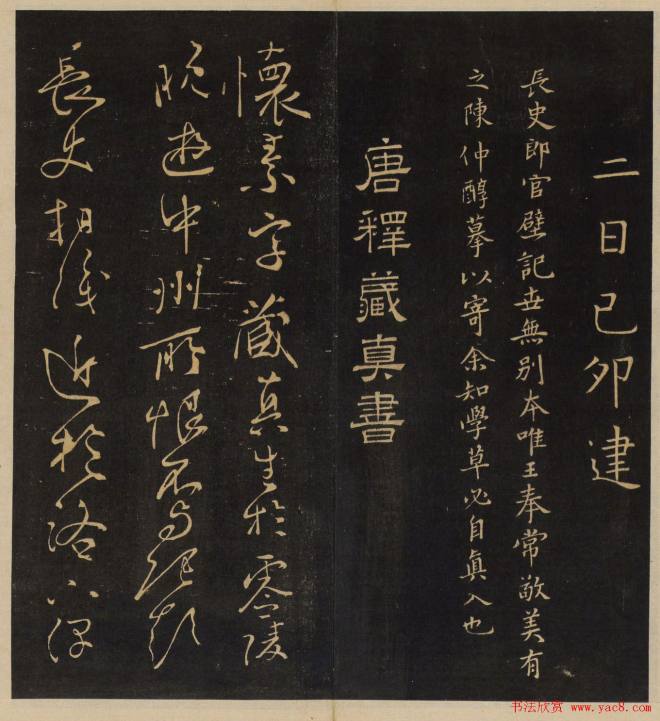 二日己卯建
長史郎官壁記世無別本唯王奉常敬美有
之陳仲醇摹以寄余知學草必自真入也
唐釋藏真書
懷素字藏真生於零陵
晚遊中州所恨不與張顛
長史相識近於洛下得
书法欣赏 www.yac8.com